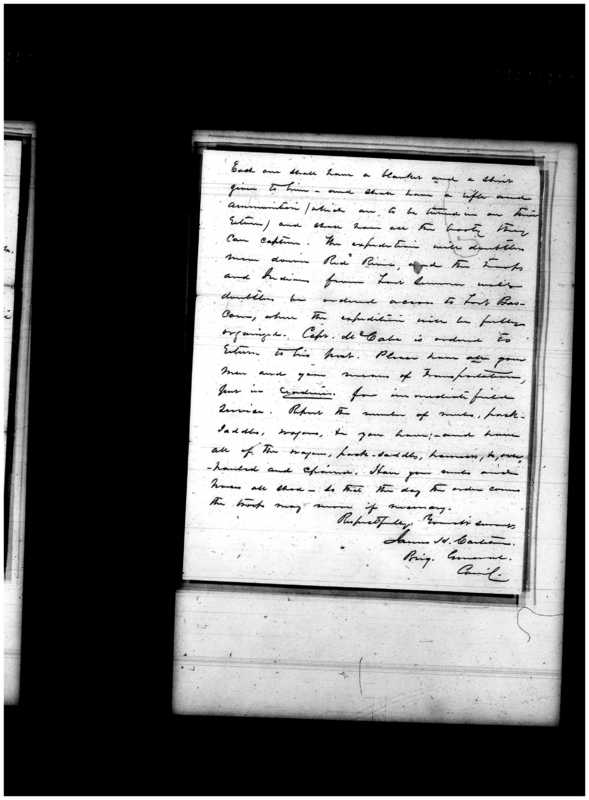 Each one shall have a blanket and a shirt
given to him – and shall have a rifle and
ammunition (which are to be turned in on their
return) and shall have all the booty they
can capture. The expedition will doubtless
move down Red River, and the troops
and Indians from Fort Sumner will
doubtless be ordered across to Fort Bas-
com, where the expedition will be fully
organized. Capt. McCabe is ordered to
return to his post. Please have all your
men and your means of transportation,
put in readiness for immediate field
service. Report the number of mules, pack-
saddles, wagons, &c you have; – and have
all of the wagons, pack-saddles, harness, &c, over-
-hauled and repaired. Have your mules and
horses all shod – so that the day the order comes
the troops may move if necessary.
Respectfully Your obt servant
James H. Carleton.
Brig. General.
Com'd'g.